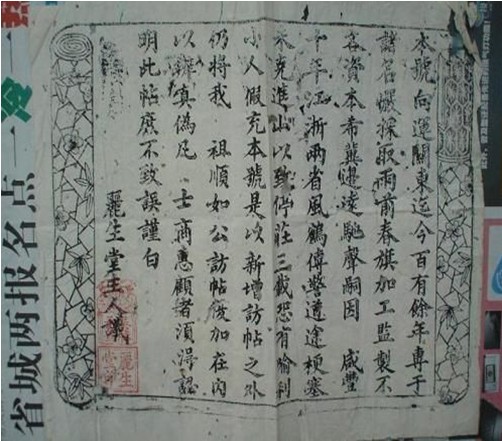 本號向運關東迄今百有餘年專于
諸名巖採取雨前春旗加工監製不
吝資本希冀遐邇馳聲嗣因 咸豐
十年江浙兩省風鶴傳警道途梗塞
未克進山以致停莊三載恐有喻利
小人假充本號是以新增訪帖之外
仍將我 祖順如公訪帖加在內
以辨真偽凡 士商惠顧者須淂認
明此帖庶不致誤謹白
麗生堂主人識
麗生
省城两报名点一